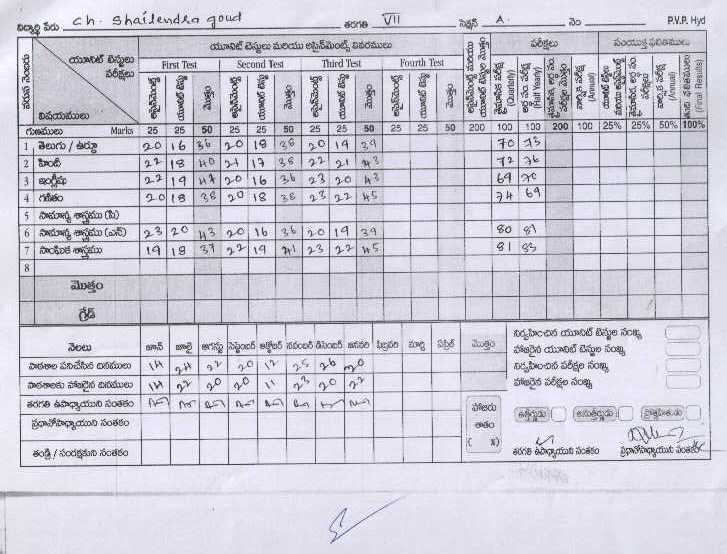 విద్యార్థి పేరు ch. Shailendra goud తరగతి VII సెక్షన్ A. నెం P.V.P. Hyd
యూనిట్ టెస్టులు మరియు అసైన్‌మెంట్స్ వివరములు పరీక్షలు సంయుక్త ఫలితములు
వరుస నెంబరు యూనిట్ టెస్టులు పరీక్షలు విషయములు
First Test Second Test Third Test Fourth Test
అసైన్‌మెంట్స్ యూనిట్ టెస్టు మొత్తం అసైన్‌మెంట్స్ యూనిట్ టెస్టు మొత్తం అసైన్‌మెంట్స్ యూనిట్ టెస్టు మొత్తం అసైన్‌మెంట్స్ యూనిట్ టెస్టు మొత్తం (Quarterly) (Half Yearly) (Annual) (Annual) (Final Results)
గుణములు Marks 25 25 50 25 25 50 25 25 50 25 25 50 200 100 100 200 100 25% 25% 50% 100%
1 తెలుగు / ఉర్దూ 20 16 36 20 18 38 20 19 39 70 73
2 హిందీ 22 18 40 21 17 38 22 21 43 72 76
3 ఇంగ్లీషు 22 19 20 16 36 23 20 43 69 70
4 గణితం 20 18 38 20 18 38 23 22 45 74 69
5 సామాన్య శాస్త్రము (పి)
6 సామాన్య శాస్త్రము (ఎన్) 23 20 43 20 16 36 20 19 39 80 81
7 సాంఘిక శాస్త్రము 19 18 37 22 19 41 23 22 45 81 83
8
మొత్తం
గ్రేడ్
నెలలు జూన్ జూలై ఆగస్టు సెప్టెంబర్ అక్టోబర్ నవంబర్ డిసెంబర్ జనవరి ఫిబ్రవరి మార్చి ఏప్రిల్ మొత్తం
పాఠశాల పనిచేసిన దినములు 14 24 22 20 12 25 26 20
పాఠశాలకు హాజరైన దినములు 14 22 20 20 11 23 20 22
తరగతి ఉపాధ్యాయుని సంతకం
ప్రధానోపాధ్యాయుని సంతకం
తండ్రి / సంరక్షకుని సంతకం
నిర్వహించిన యూనిట్ టెస్టుల సంఖ్య
హాజరైన యూనిట్ టెస్టుల సంఖ్య
నిర్వహించిన పరీక్షల సంఖ్య
హాజరైన పరీక్షల సంఖ్య
హాజరు శాతం ( %)
ఉత్తీర్ణుడు అనుత్తీర్ణుడు ప్రోత్సాహితుడు
తరగతి ఉపాధ్యాయుని సంతకం ప్రధానోపాధ్యాయుని సంతకం